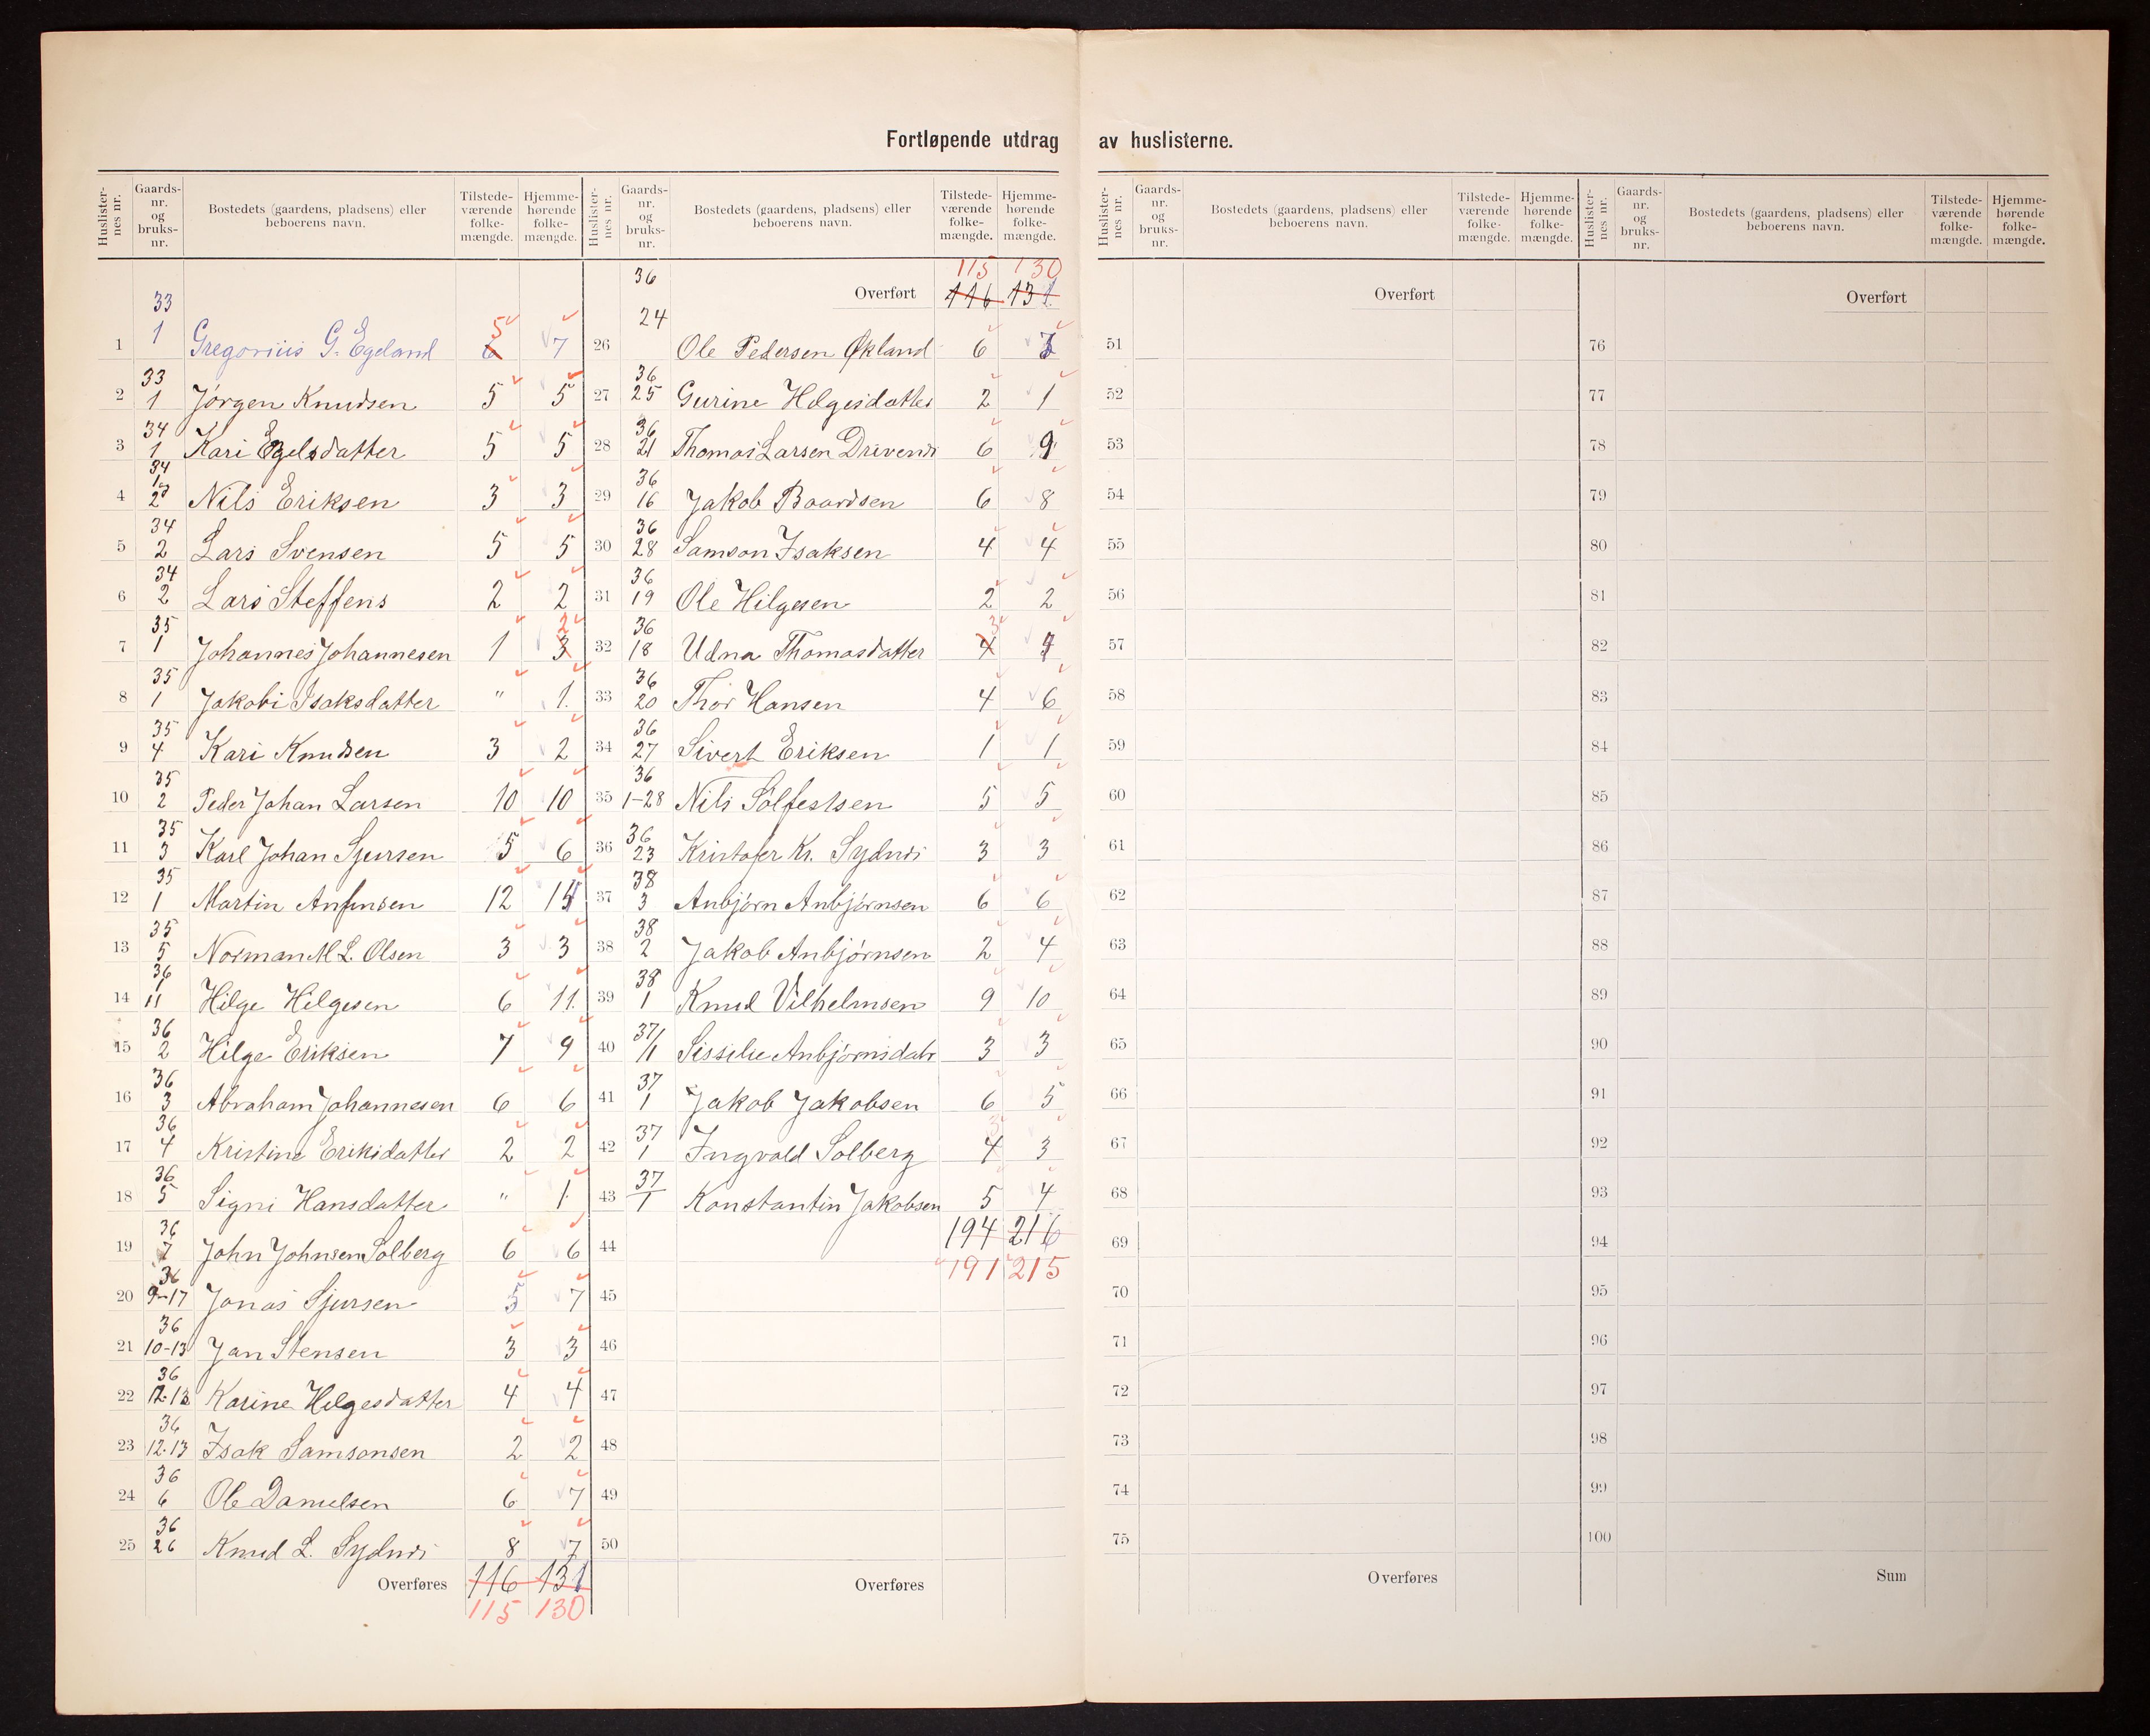 Fortløpende utdrag av huslisterne.
Huslisternes nr. | Gaards-nr. og bruks-nr. | Bostedets (gaardens, pladsens) eller beboerens navn. | Tilstedeværende folkemængde. | Hjemmehørende folkemængde.
1 | 33 1 | Gregorius G. Egeland | 6 5 | 7
2 | 33 1 | Jørgen Knudsen | 5 | 5
3 | 34 1 | Kari Egelsdatter | 5 | 5
4 | 34 | Nils Eriksen | 3 | 3
5 | 34 2 | Lars Svensen | 5 | 5
6 | 34 2 | Lars Steffens | 2 | 2
7 | 35 1 | Johannes Johannesen | 1 | 3 2
8 | 35 1 | Jakobi Isaksdatter | " | 1.
9 | 35 4 | Kari Knudsen | 3 | 2
10 | 35 2 | Peder Johan Larsen | 10 | 10
11 | 35 3 | Karl Johan Sjursen | 5 | 6
12 | 35 1 | Martin Anfinsen | 12
13 | 35 5 | Norman M L. Olsen | 3 | 3
14 | 36 11 | Hilge Hilgesen | 6 | 11.
15 | 36 2 | Hilge Eriksen | 7 | 9
16 | 36 3 | Abraham Johannesen | 6 | 6
17 | 36 4 | Kristine Eriksdatter | 2 | 2
18 | 36 5 | Signi Hansdatter | " | 1
19 | 36 7 | John Johnsen Solberg | 6 | 6
20 | 36 9-17 | Jonas Sjursen | 5 | 7
21 | 36 10-13 | Jan Stensen | 3 | 3
22 | 36 12-13 | Karine Helgesdatter | 4 | 4
23 | 36 12.13 | Isak Samsonsen | 2 | 2
24 | 36 6 | Ole Danielsen | 6 | 7
25 | 36 26 | Knud L. Sydnes | 8 | 7
Overføres | 116 | 131
115 | 130
Huslisternes nr. | Gaards-nr. og bruks-nr. | Bostedets (gaardens, pladsens) eller beboerens navn. | Tilstedeværende folkemængde. | Hjemmehørende folkemængde.
115 | 130
Overført | 116 | 131
26 | 36 24 | Ole Pedersen Økland | 6 | 7
27 | 36 25 | Gurine Helgesdatter | 2 | 1
28 | 36 21 | Thomas Larsen Drivenes | 6 | 9
29 | 36 16 | Jakob Baardsen | 6 | 8
30 | 36 28 | Samson Isaksen | 4 | 4
31 | 36 19 | Ole Hilgesen | 2 | 2
32 | 36 18 | Udna Thomasdatter | 4 3
33 | 36 20 | Thor Hansen | 4 | 6
34 | 36 27 | Sivert Eriksen | 1 | 1
35 | 36 1-28 | Nils Sølfestsen | 5 | 5
36 | 36 23 | Kristofer Kr. Sydnes | 3 | 3
37 | 38 3 | Anbjørn Anbjørnsen | 6 | 6
38 | 38 2 | Jakob Anbjørnsen | 2 | 4
39 | 38 1 | Knud Vilhelmsen | 9 | 10
40 | 37/1 | Sissilie Anbjørnsdatr | 3 | 3
41 | 37 1 | Jakob Jakobsen | 6 | 5
42 | 37 1 | Ingvald Solberg | 4 3 | 3
43 | 37/1 | Konstantin Jakobsen | 5 | 4
194 | 216
44
191 | 215
45
46
47
48
49
50
Overføres
Huslisternes nr. | Gaards-nr. og bruks-nr. | Bostedets (gaardens, pladsens) eller beboerens navn. | Tilstedeværende folkemængde. | Hjemmehørende folkemængde.
Overført
51
52
53
54
55
56
57
58
59
60
61
62
63
64
65
66
67
68
69
70
71
72
73
74
75
Overføres
Huslisternes nr. | Gaards-nr. og bruks-nr. | Bostedets (gaardens, pladsens) eller beboerens navn. | Tilstedeværende folkemængde. | Hjemmehørende folkemængde.
Overført
76
77
78
79
80
81
82
83
84
85
86
87
88
89
90
91
92
93
94
95
96
97
98
99
100
Sum